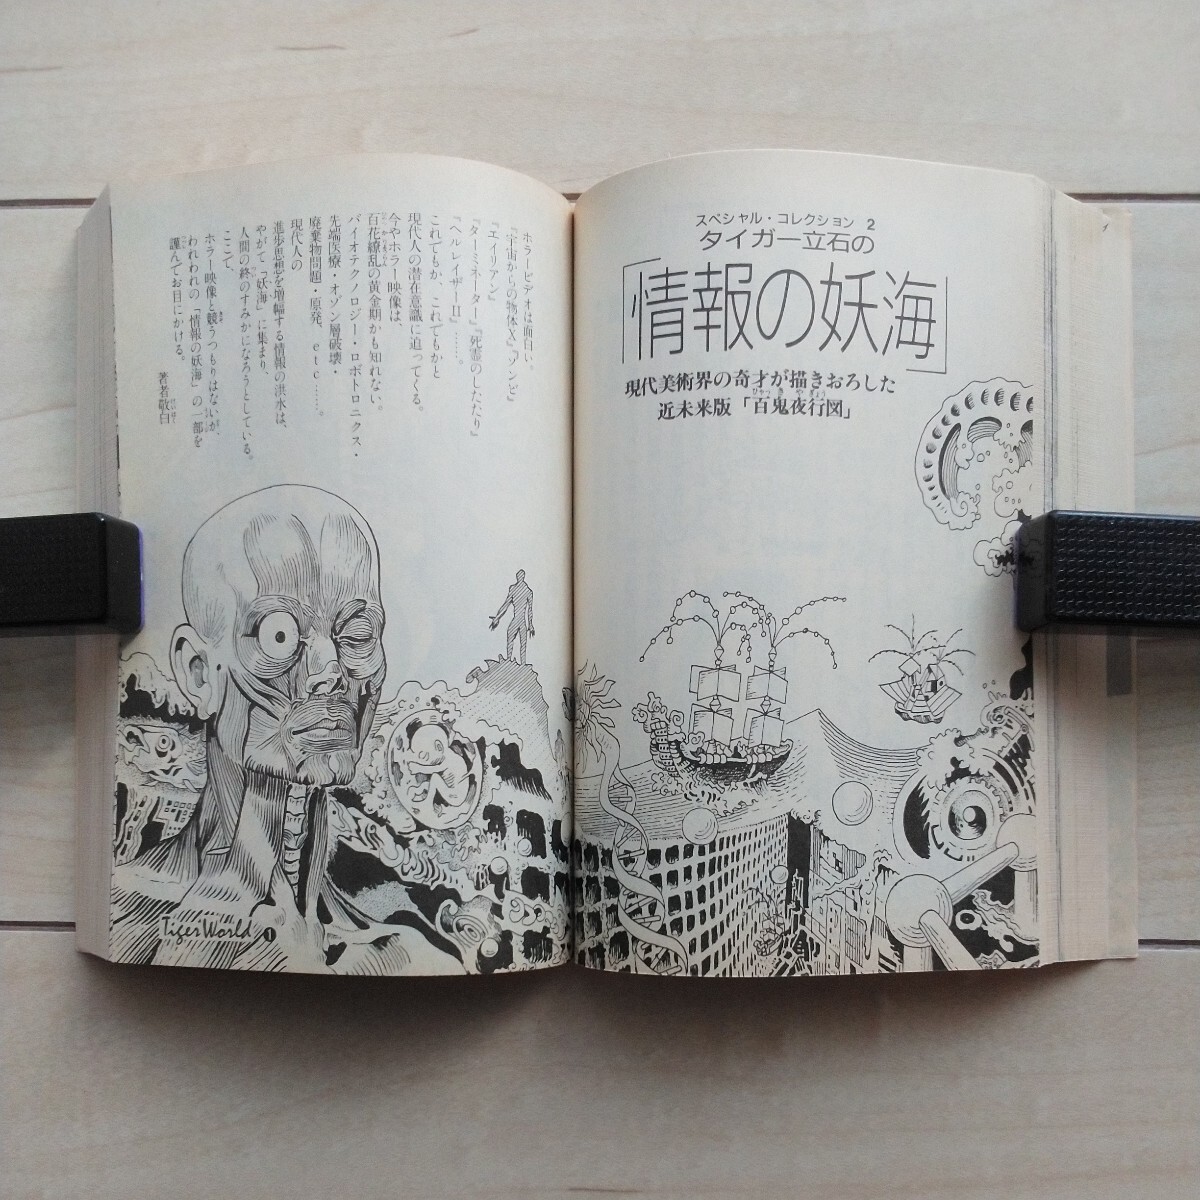 スペシャル・コレクション 2
タイガー立石の
「情報の妖海」
現代美術界の奇才が描きおろした
近未来版「百鬼夜行図」
ホラービデオは面白い。
『宇宙からの物体X』『ゾンビ』
『エイリアン』
『ターミネーター』『死霊のしたたり』
『ヘルレイザーII』……。
これでもか、これでもかと
現代人の潜在意識に迫ってくる。
今やホラー映像は、
百花繚乱の黄金期かも知れない。
バイオテクノロジー・ロボトロニクス・
先端医療・オゾン層破壊・
廃棄物問題・原発、etc……。
現代人の
進歩思想を増幅する情報の洪水は、
やがて「妖海」に集まり、
人間の終のすみかになろうとしている。
ここで、
ホラー映像と競うつもりはないが、
われわれの「情報の妖海」の一部を
謹んでお目にかける。
著者敬白
Tiger World 1